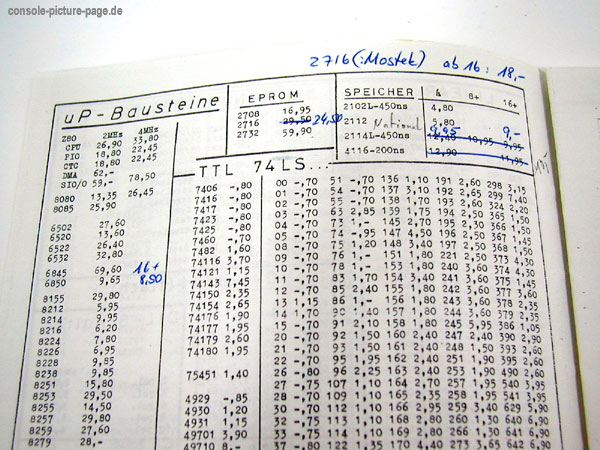 console-picture-page.de
2716 (:Mostek) ab 16 : 18,-
uP-Bausteine
2MHz 4MHz
Z80
CPU 26,90 33,80
PIO 18,80 22,45
CTC 18,80 22,45
DMA 62,-
SIO/O 59,- 78,50
8080 13,35 26,45
8085 25,90
6502 27,60
6520 13,60
6522 26,40
6532 32,80
6845 69,60 16+
6850 9,65 8,50
8155 29,80
8212 5,95
8214 9,95
8216 6,20
8224 7,80
8226 6,95
8228 9,95
8238 9,85
8251 15,80
8253 29,50
8255 14,50
8257 29,80
8259 27,60
8279 28,-
EPROM
2708 16,95
2716 29,50 24,50
2732 59,90
SPEICHER & 8+ 16+
2102L-450ns 4,80
2112 National 5,80
9,95 9,-
2114L-450ns 12,40 10,95 9,95
4116-200ns 12,90 11,95
TTL 74LS...
7406 -,80
7416 -,80
7417 -,80
7423 -,80
7425 -,80
7460 -,70
7482 1,60
74116 3,70
74121 1,15
74143 7,45
74150 2,35
74154 2,65
74176 1,90
74177 1,95
74179 2,60
74180 1,95
75451 1,40
4929 -,85
4930 1,20
4931 1,15
49701 3,90
49710 8,-
00 -,70 51 -,70 136 1,10 191 2,60 298 3,15
01 -,70 54 -,70 137 3,10 192 2,65 299 7,40
02 -,70 55 -,70 138 1,70 193 2,60 324 2,20
03 -,70 63 2,85 139 1,75 194 2,50 365 1,50
04 -,70 73 1,- 145 2,70 195 2,30 366 1,50
05 -,70 74 -,95 147 4,50 196 2,50 367 1,45
08 -,70 75 1,20 148 3,40 197 2,50 368 1,50
09 -,70 76 1,- 151 1,80 221 2,50 373 4,30
10 -,70 78 1,- 153 1,80 240 3,60 374 4,30
11 -,70 83 1,70 154 3,40 241 3,60 375 1,45
12 -,70 85 2,40 155 1,80 242 3,60 377 3,60
13 1,15 86 1,- 156 1,80 243 3,60 378 2,35
14 1,40 157 1,80 244 3,60 379 2,35
15 -,70 91 2,10 158 1,80 245 5,95 386 1,05
20 -,70 92 1,50 160 2,40 247 2,40 390 2,90
21 -,70 93 1,50 161 2,40 248 1,50 393 2,60
22 -,70 95 1,95 162 2,40 251 1,90 395 2,60
26 -,80 96 2,25 163 2,40 253 1,90 490 2,60
27 -,75 107 1,10 164 2,70 257 1,95 540 3,95
28 -,70 109 1,10 165 2,35 258 1,95 541 3,95
30 -,70 112 1,10 166 2,95 259 3,40 629 5,90
33 -,70 113 1,10 169 2,80 260 1,30 640 6,90
33 -,70 114 1,10 169 2,80 266 1,30 641 6,90
37 -,80 122 1,35 170 4,40 273 3,65 642 6,90